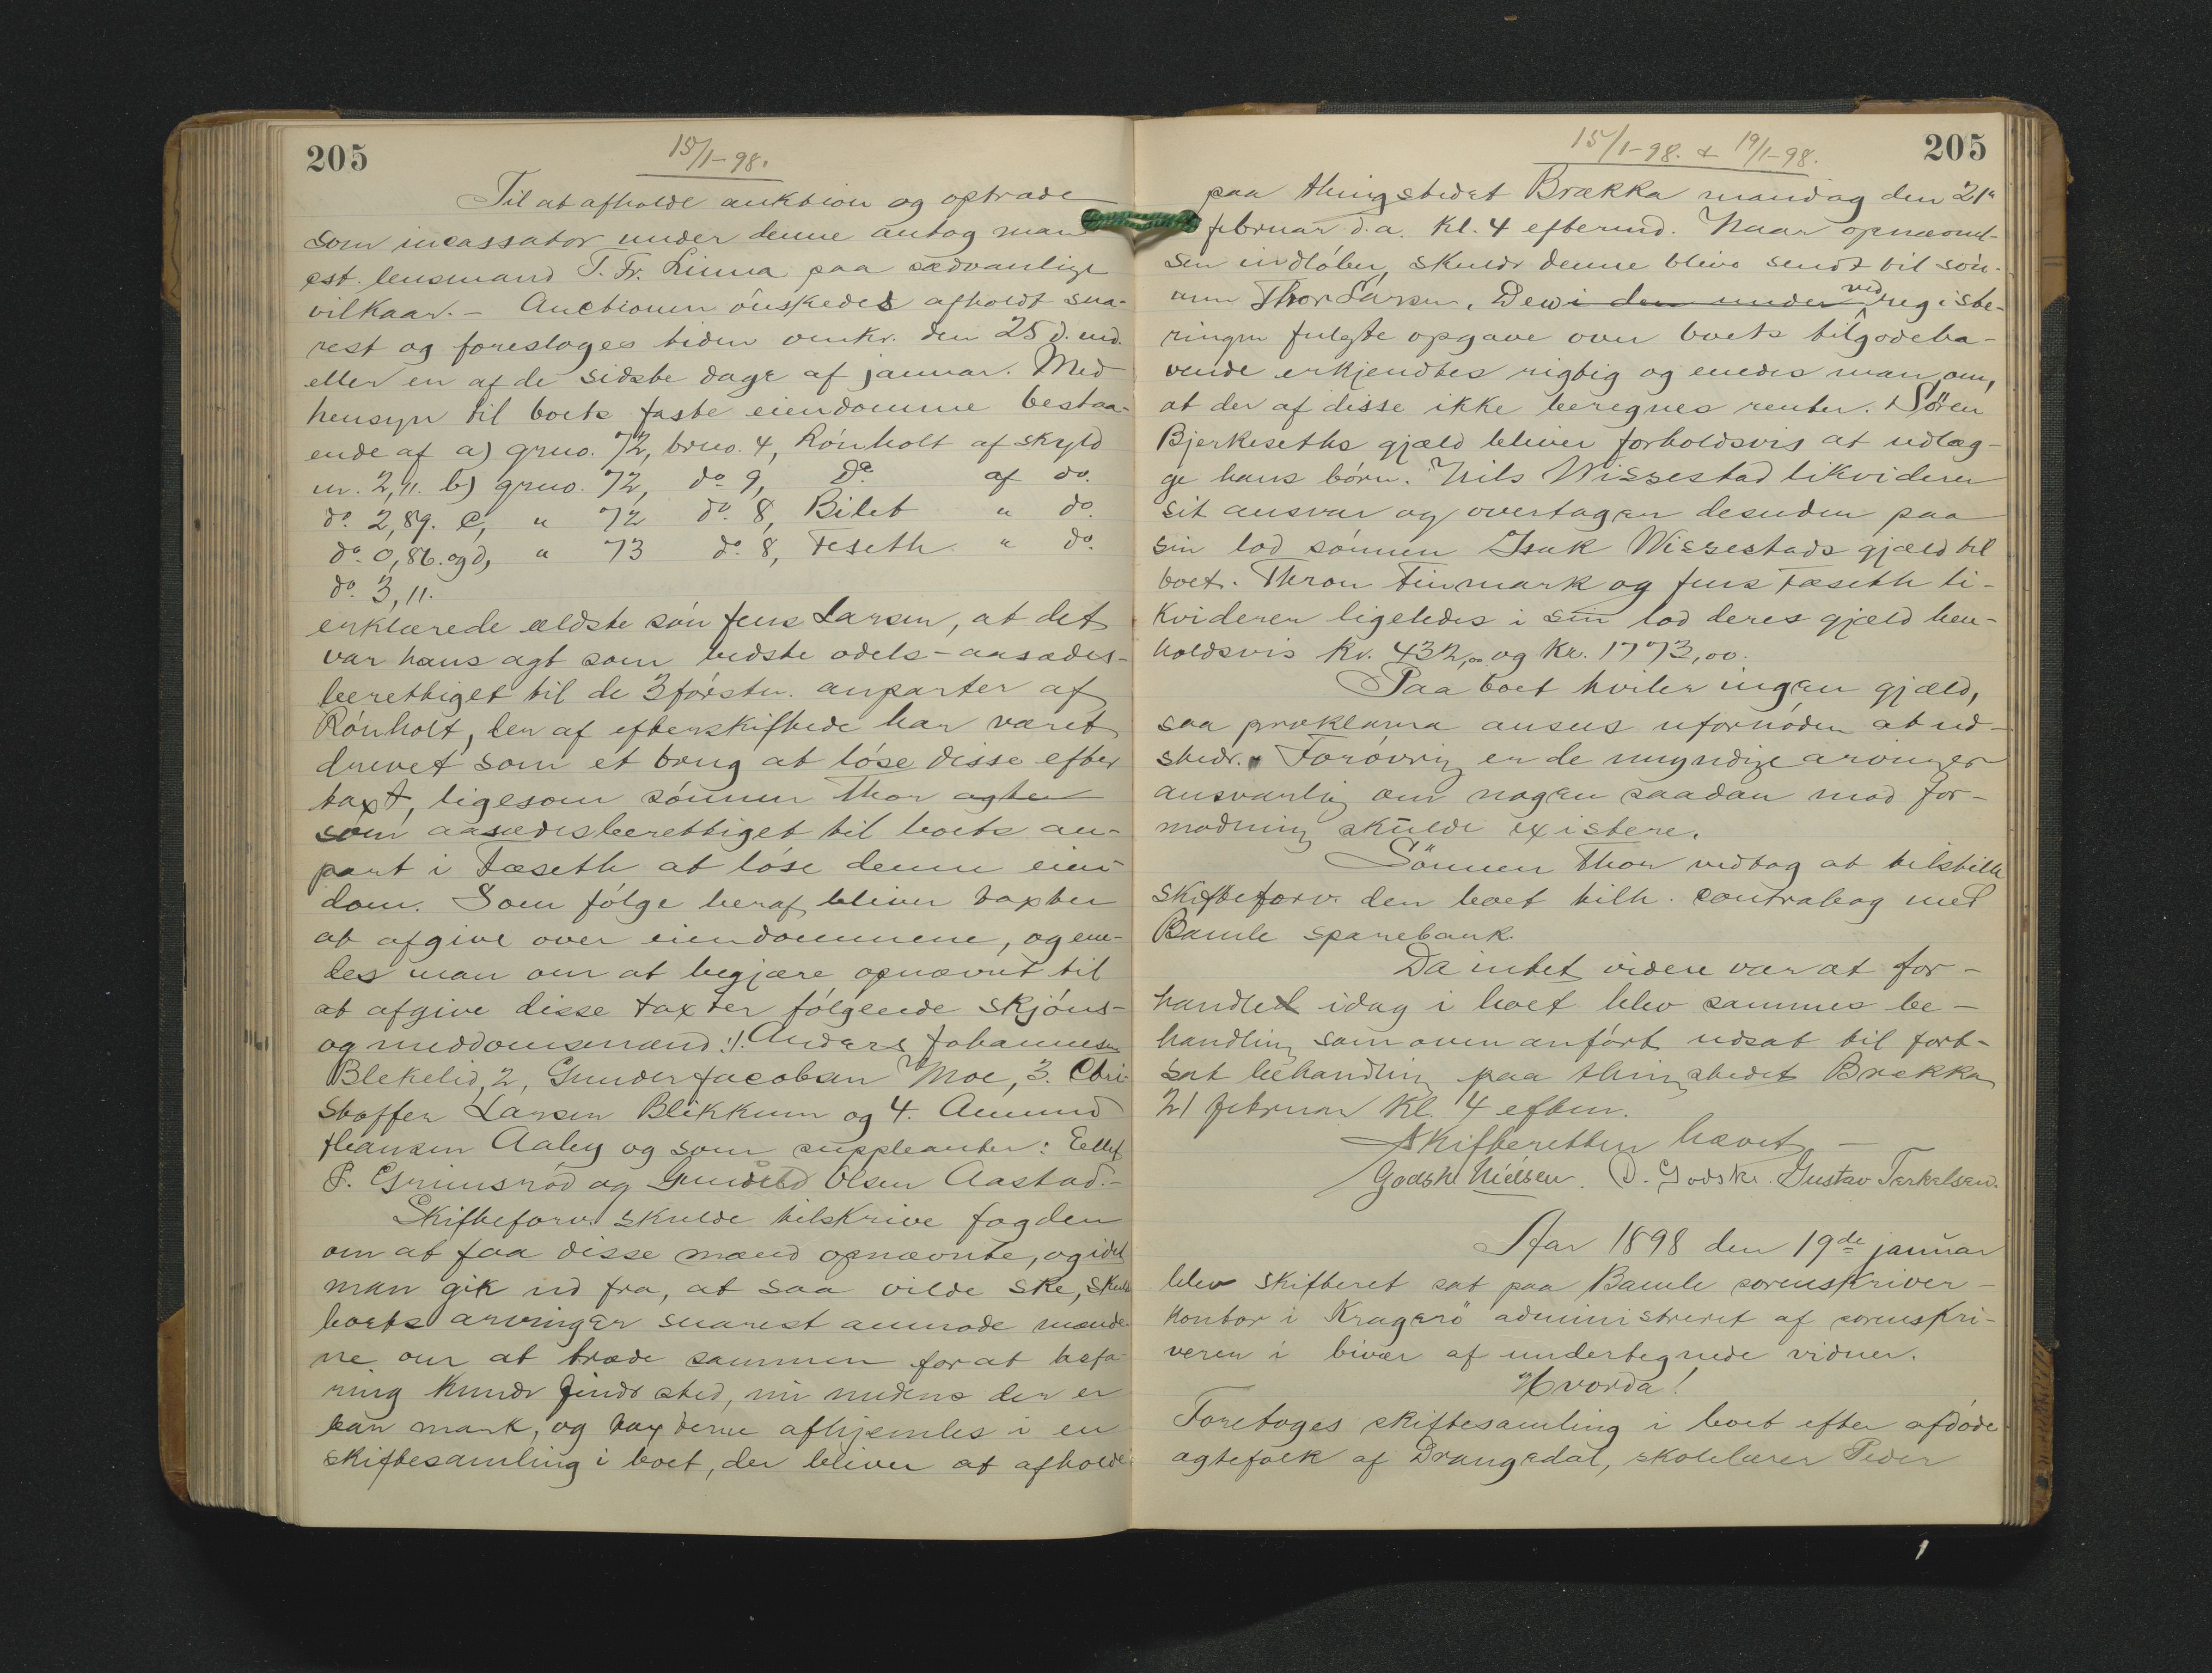 205
15/1-98.
Til at afholde auktion og optræde
som incassator under denne antog man
est. lensmand T. Fr. Linna paa sædvanlige
vilkaar. - Auctionen önskedes afholdt sna-
rest og foresloges tiden omkr. den 25 d. md.
eller en af de sidste dage af januar. Med
hensyn til boets faste eiendomme bestaa-
ende af a) grno. 72, brno. 4, Rönholt af skyld
m. 2,11. b) grno. 72, do 9, Do. af do.
do. 2,89. C, " 72 do. 8, Bilet " do.
do. 0,86. og d, " 73 do. 8, Feseth " do.
do. 3,11.
erklærede ældste sön Jens Larsen, at det
var hans agt som bedste odels- aasædes-
berettiget til de 3 förstn. anparter af
Rönholt, der af efterskiftede har været
drevet som et brug at löse disse efter
taxt, ligesom sönnen Thor agter
som aasædesberettiget til boets an-
part i Fæseth at löse denne eien-
dom. Som fölge heraf bliver taxter
at afgive over eiendommene, og ene-
des man om at begjære opnævnt til
at afgive disse taxter fölgende skjöns-
og meddomsmænd: 1. Anders Johannesen
Blekelid, 2, Gunder Jacobsen Moe, 3. Chri
stoffer Larsen Blikkum og 4. Amund
Hansen Aaby og som suppleanter: Ellef
P. Grimsröd og Olsen Aastad. -
Skifteforv. skulde tilskrive fogden
om at faa disse mænd opnævnte, og idet
man gik ud fra, at saa vilde ske, skulde
boets arvinger snarest anmode mænde
ne om at træde sammen for at befa-
ring kunde finde sted, nu medens der er
bar mark, og taxterne afhjemles i en
skiftesamling i boet, der bliver at afholde
15/1-98. & 19/1-98.
205
paa thingstedet Brækka mandag den 21de
februar d.a. kl. 4 eftermd. Naar opnævnel-
sen indlöber, skulde denne blive sendt til sön-
nen Thor Larsen. Den i den under ved registe-
ringen fulgte opgave over boets tilgodeha-
vende erkjendtes rigtig og enedes man om,
at der af disse ikke beregnes renter. Sören
Bjerkeseths gjæld bliver forholdsvis at udlæg-
ge hans börn. Nils Wissestad likviderer
sit ansvar og overtager desuden paa
sin lod sönnen Isak Wissestads gjæld til
boet. Thron Finmark og Jens Fæseth li-
kviderer ligeledes i sin lod deres gjæld hen-
holdsvis Kr. 432,00 og Kr. 1773,00.
Paa boet hviler ingen gjæld,
saa proklama ansees ufornöden at ud-
stede. Forövrig er de myndige arvinger
ansvarlig om nogen saadan mod for-
modning skulde existere.
Sönnen Thor vedtog at tilstille
skifteforv. den boet tilh. contrabog med
Bamle sparebank.
Da intet videre var at for-
handle idag i boet blev sammes be-
handling som oven anfört udsat til fort-
sat behandling paa thingstedet Brækka
21 februar kl. 4 efterm.
Skifteretten hævet -
Godske Nielsen. D. Godske. Gustav Terkelsen.
Aar 1898 den 19de januar
blev skifteret sat paa Bamle sorenskriver-
kontor i Kragerö administreret af sorenskri-
veren i bivær af undertegnede vidner.
Hvorda!
Foretoges skiftesamling i boet efter afdöde
ægtefolk af Drangedal, skolelærer Peder